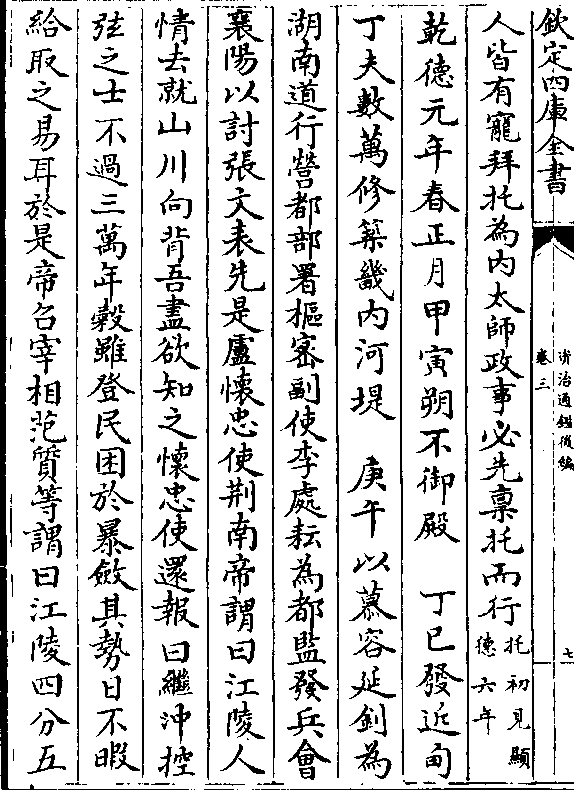 欽定四庫全書
資治通鑑後編
卷三
七
人皆有寵拜托為内太師政事必先禀托而行托初見顯德六年
乾德元年春正月甲寅朔不御殿　丁巳發近甸
丁夫數萬修築畿内河堤　庚午以慕容延釗為
湖南道行營都部署樞密副使李處耘為都監發兵會
襄陽以討張文表先是盧懷忠使荆南帝謂曰江陵人
情去就山川向背吾盡欲知之懷忠使還報曰繼沖控
弦之士不過三萬年穀雖登民困於暴斂其勢日不暇
給取之易耳於是帝召宰相范質等謂曰江陵四分五